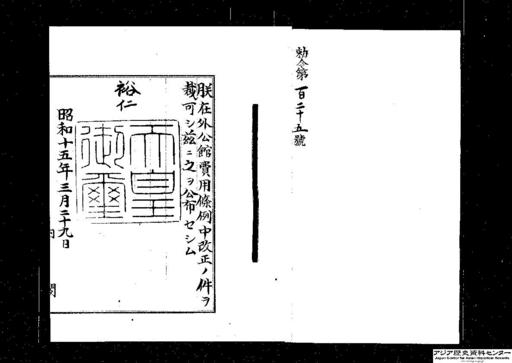 勅令第百二十五號
朕在外公館費用條例中改正ノ件ヲ
裁可シ茲ニ之ヲ公布セシム
裕仁
天皇
御璽
昭和十五年三月二十九日
内閣
アジア歴史資料センター
Japan Center for Asian Historical Records